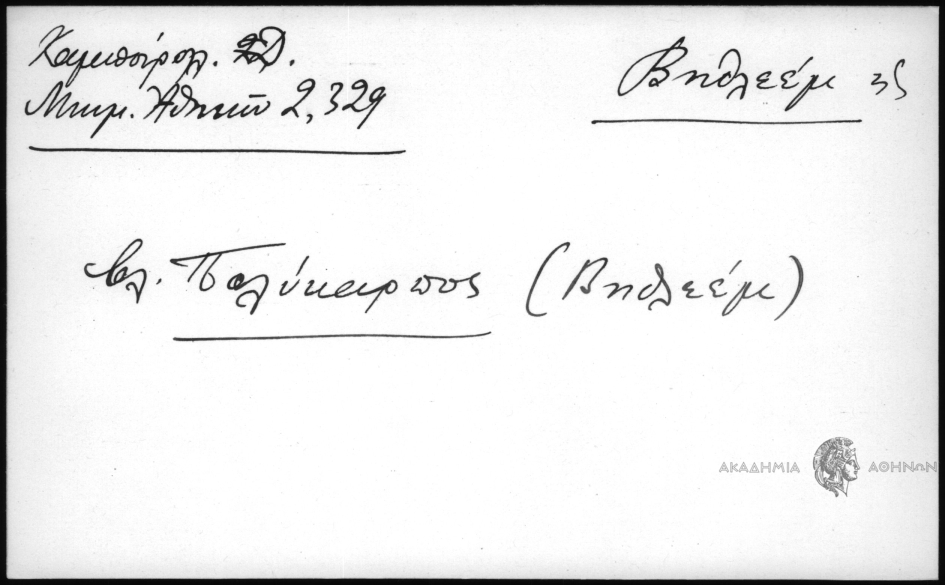 Καμπούρογλ. Δ.
Μνημ. Ἀθηνῶν 2, 329
Βηθλεέμ ἡ
βλ. Πολύκαρπος (Βηθλεέμ)
ΑΚΑΔΗΜΙΑ ΑΘΗΝΩΝ